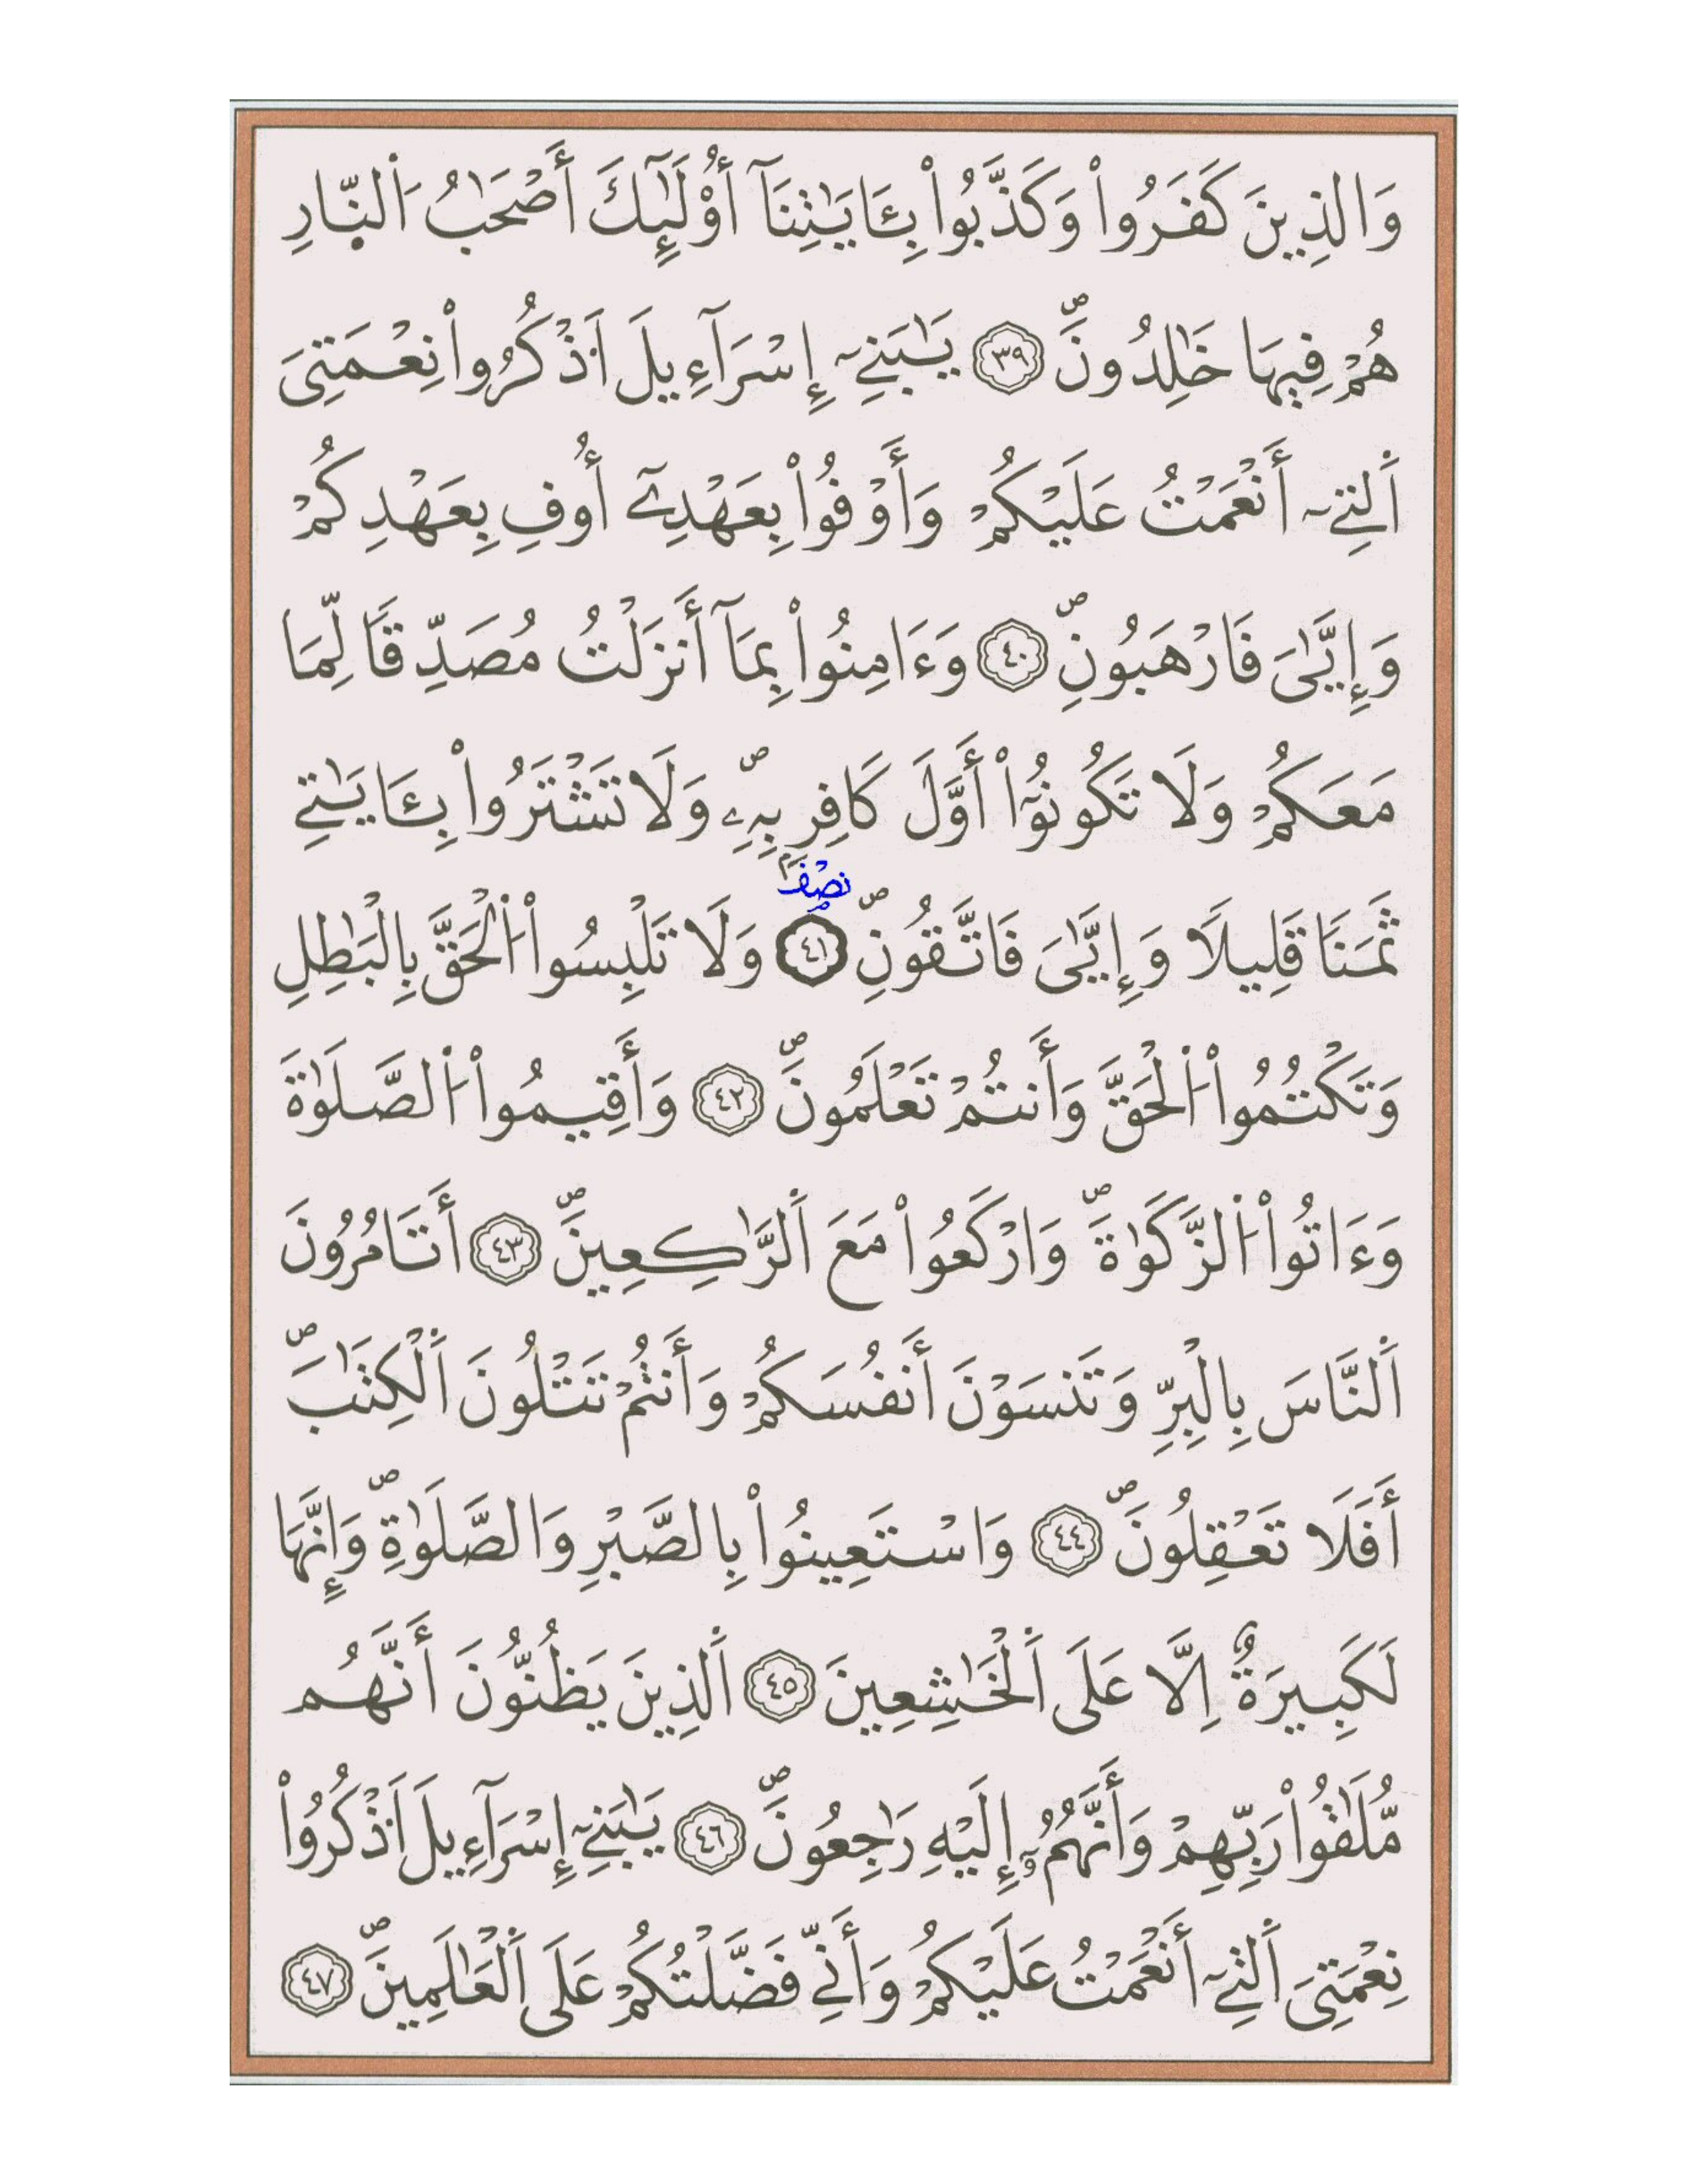 وَالذِينَ كَفَرُواْ وَكَذَّبُواْ بِـَٔايَٰتِنَآ أُوْلَٰٓئِكَ أَصْحَٰبُ اُ۬لنّ۪ارِ
هُمْ فِيهَا خَٰلِدُونَۖ ٣٩ يَٰبَنِےٓ إِسْرَآءِيلَ اَ۟ذْكُرُواْ نِعْمَتِيَ
اَ۬لتِےٓ أَنْعَمْتُ عَلَيْكُمْ وَأَوْفُواْ بِعَهْدِےٓ أُوفِ بِعَهْدِكُمْ
وَإِيَّٰيَ فَارْهَبُونِۖ ٤٠ وَءَامِنُواْ بِمَآ أَنزَلْتُ مُصَدِّقاٗ لِّمَا
مَعَكُمْ وَلَا تَكُونُوٓاْ أَوَّلَ كَافِرِۢ بِهِۦۖ وَلَا تَشْتَرُواْ بِـَٔايَٰتِے
نصف
ثَمَناٗ قَلِيلاٗ وَإِيَّٰيَ فَاتَّقُونِۖ ٤١ وَلَا تَلْبِسُواْ اُ۬لْحَقَّ بِالْبَٰطِلِ
وَتَكْتُمُواْ اُ۬لْحَقَّ وَأَنتُمْ تَعْلَمُونَۖ ٤٢ وَأَقِيمُواْ اُ۬لصَّلَوٰةَ
وَءَاتُواْ اُ۬لزَّكَوٰةَۖ وَارْكَعُواْ مَعَ اَ۬لرَّٰكِعِينَۖ ٤٣ أَتَامُرُونَ
اَ۬لنَّاسَ بِالْبِرِّ وَتَنسَوْنَ أَنفُسَكُمْ وَأَنتُمْ تَتْلُونَ اَ۬لْكِتَٰبَۖ
أَفَلَا تَعْقِلُونَۖ ٤٤ وَاسْتَعِينُواْ بِالصَّبْرِ وَالصَّلَوٰةِۖ وَإِنَّهَا
لَكَبِيرَةٌ اِلَّا عَلَي اَ۬لْخَٰشِعِينَ ٤٥ اَ۬لذِينَ يَظُنُّونَ أَنَّهُم
مُّلَٰقُواْ رَبِّهِمْ وَأَنَّهُمُۥٓ إِلَيْهِ رَٰجِعُونَۖ ٤٦ يَٰبَنِےٓ إِسْرَآءِيلَ اَ۟ذْكُرُواْ
نِعْمَتِيَ اَ۬لتِےٓ أَنْعَمْتُ عَلَيْكُمْ وَأَنِّے فَضَّلْتُكُمْ عَلَي اَ۬لْعَٰلَمِينَۖ ٤٧